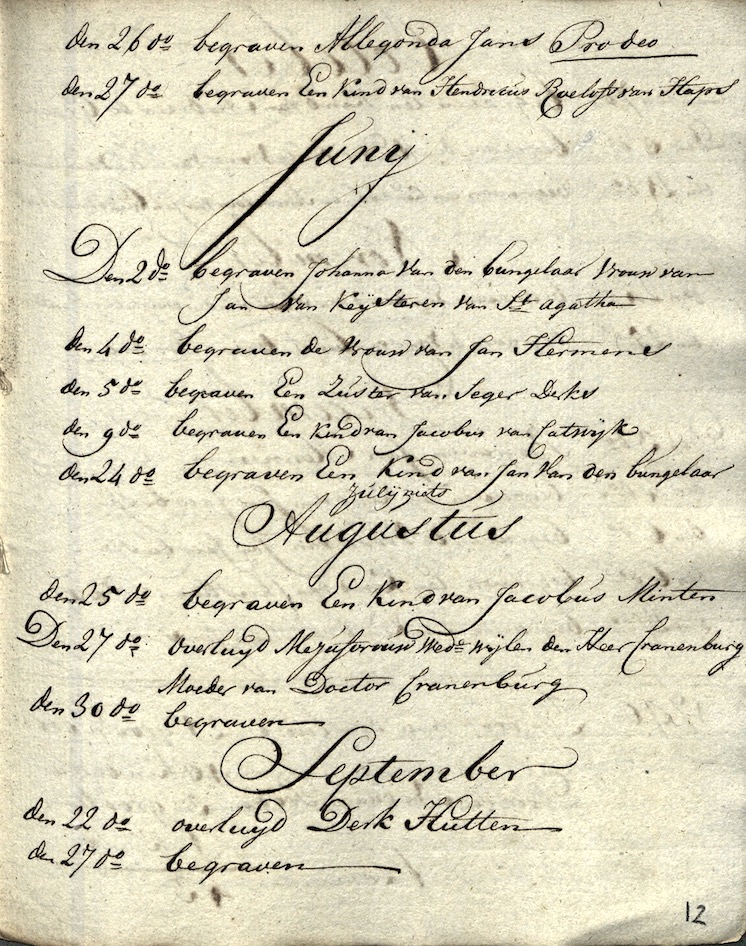 den 26 do begraven Allegonda Jans Pro deo
den 27 do begraven Een Kind van Hendricus Roelofs van Haps
Junij
Den 2 do begraven Johanna van den bungelaar vrouw van
Jan van Keÿsteren van St agatha
den 4 do begraven de vrouw van Jan Hermens
den 5 do begraven Een Zúster van Seger Derks
den 9 do begraven Een Kind van Jacobus van Catwijk
den 24 do begraven Een Kind van Jan van den bungelaar
Julij niets
Augustús
den 25 do begraven Een Kind van Jacobús Minten
Den 27 do overluyd Mejufvrouw Wede wijlen den Heer Cranenburg
Moeder van Doctor Cranenbúrg
den 30 do begraven
September
den 22 do overluyd Derk Hutten
den 27 do begraven
12